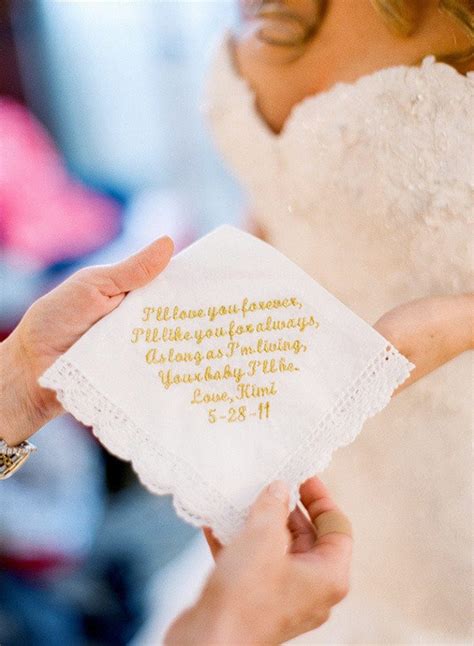 I'll love you forever,
I'll like you for always,
As long as I'm living,
Your baby I'll be.
Love, Kimi
5-28-11